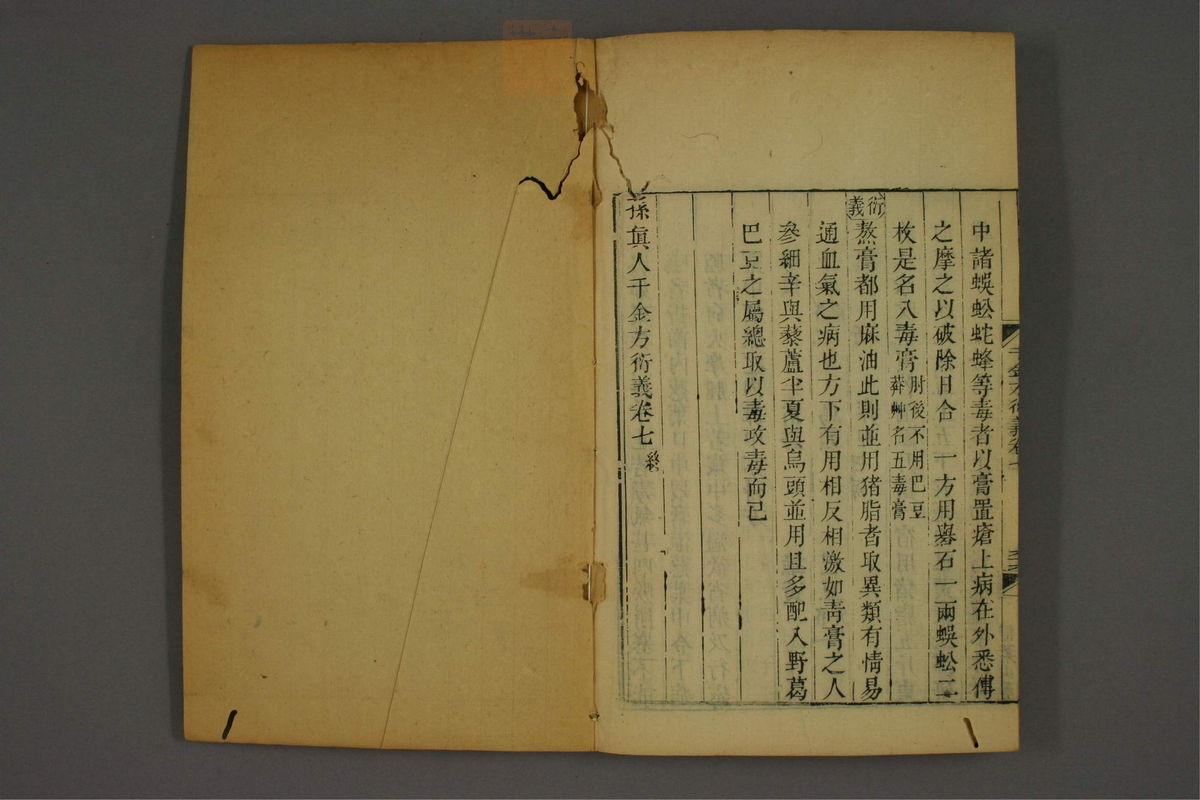 中諸蜈蚣蛇蜂等毒者以膏置瘡上病在外悉傅
之摩之以破除日合一方用礜石一兩蜈蚣二
枚是名八毒膏肘後不用巴豆莽艸名五毒膏
衍義熬膏都用麻油此則並用猪脂者取異類有情易
通血氣之病也方下有用相反相激如靑膏之人
參細辛與藜蘆半夏與烏頭並用且多配入野葛
巴豆之屬總取以毒攻毒而已
孫眞人千金方衍義卷七終
千金方衍義卷七